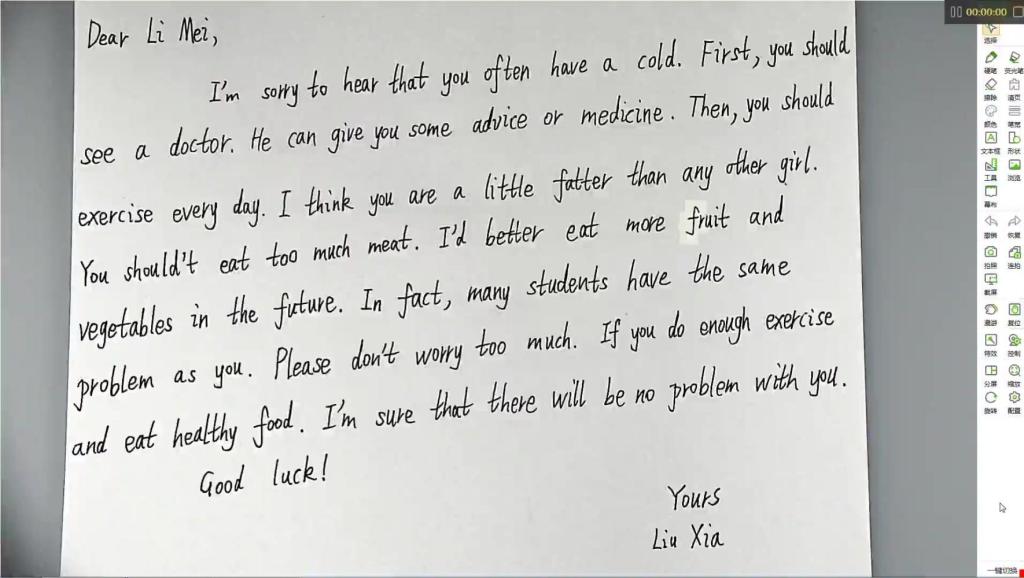 00:00:00
Dear Li Mei,
I'm sorry to hear that you often have a cold. First, you should
see a doctor. He can give you some advice or medicine. Then, you should
exercise every day. I think you are a little fatter than any other girl.
You should't eat too much meat. I'd better eat more fruit and
vegetables in the future. In fact, many students have the same
problem as you. Please don't worry too much. If you do enough exercise
and eat healthy food. I'm sure that there will be no problem with you.
Good luck!
Yours
Liu Xia
选择
硬笔 荧光笔
擦除 清页
颜色 笔宽
文本框 形状
工具 浏览
幕布
撤销 恢复
拍照 连拍
截屏
漫游 复位
特效 控制
分屏 缩放
旋转 配置
一键切换